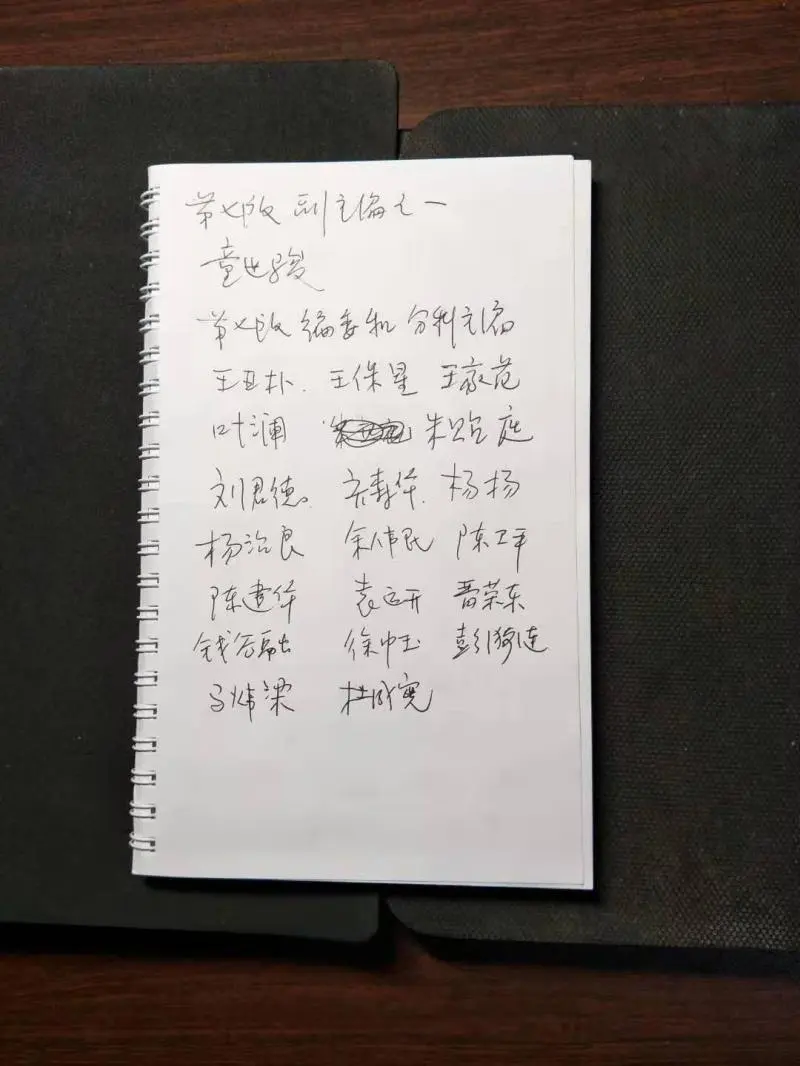 第七版副主编之一
童世骏
第七版编委和分科主编
王亚朴.王保星 王家范
叶澜 朱贻庭
刘君德。齐森华.杨扬
杨治良 余伟民 陈卫平
陈建华 袁运开 晋荣东
钱谷融 徐中玉 彭漪涟
马炜梁 杜成宪